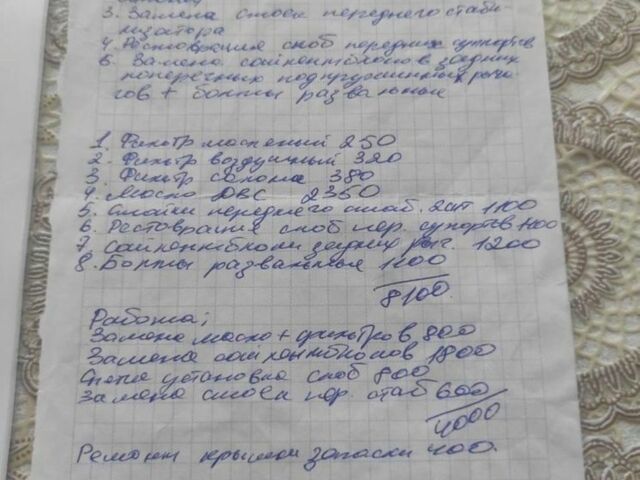 3. Замена стоек переднего стаби-
лизатора
4. Реставрация скоб передних суппортов
5. Замена сайлентблоков задних
поперечных подпружинных рыча-
гов + болты развальные
1. Фильтр масленый 250
2. Фильтр воздушный 320
3. Фильтр салона 380
4. Масло ДВС 2350
5. Стойки переднего стаб. 2шт 1100
6. Реставрация скоб пер. суппортов
7. Сайлентблоки задних рыч. 1200
8. Болты развальные
8100.
Работа;
Замена масло + фильтров 800
Замена сайлентблоков 1800
Снятие установка скоб 800
Замена стоек пер. стаб 600
4000
Ремонт крышки запаски 400.